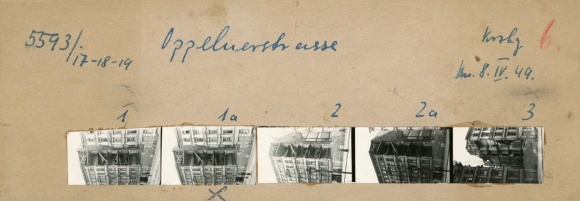 5593/.
17-18-19
Oppelnerstrasse
Krzbg
6.
Kn. 8. IV. 49.
1 1a 2 2a 3
x
x